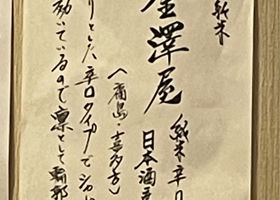 純米
澤屋
純米辛口
日本酒
（福島・喜多方）
りとした辛口タイプでシ
効いているので凛として輪郭